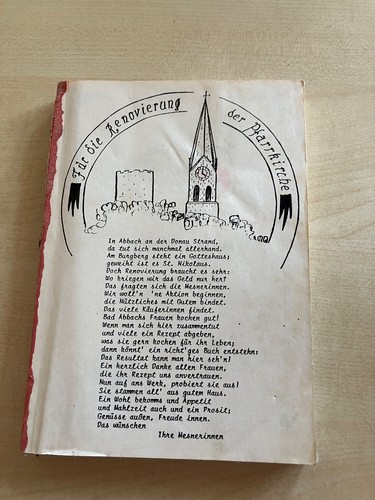 Für die Renovierung der Pfarrkirche
In Abbach an der Donau Strand,
da tut sich manchmal allerhand.
Am Burgberg steht ein Gotteshaus;
geweiht ist es St. Nikolaus.
Doch Renovierung braucht es sehr:
Wo kriegen wir das Geld nur her?
Das fragten sich die Mesnerinnen.
Wir woll'n 'ne Aktion beginnen,
die Nützliches mit Gutem bindet.
Das viele Käuferinnen findet.
Bad Abbachs Frauen kochen gut!
Wenn man sich hier zusammentut
und viele ein Rezept abgeben,
was sie gern kochen für ihr Leben;
dann könnt' ein richt'ges Buch entstehn:
Das Resultat kann man hier seh'n!
Ein herzlich Danke allen Frauen,
die ihr Rezept uns anvertrauen.
Nun auf ans Werk, probiert sie aus!
Sie stammen all' aus gutem Haus.
Ein Wohl bekomms und Appetit
und Mahlzeit auch und ein Prosit;
Genüsse außen, Freude innen.
Das wünschen
Ihre Mesnerinnen